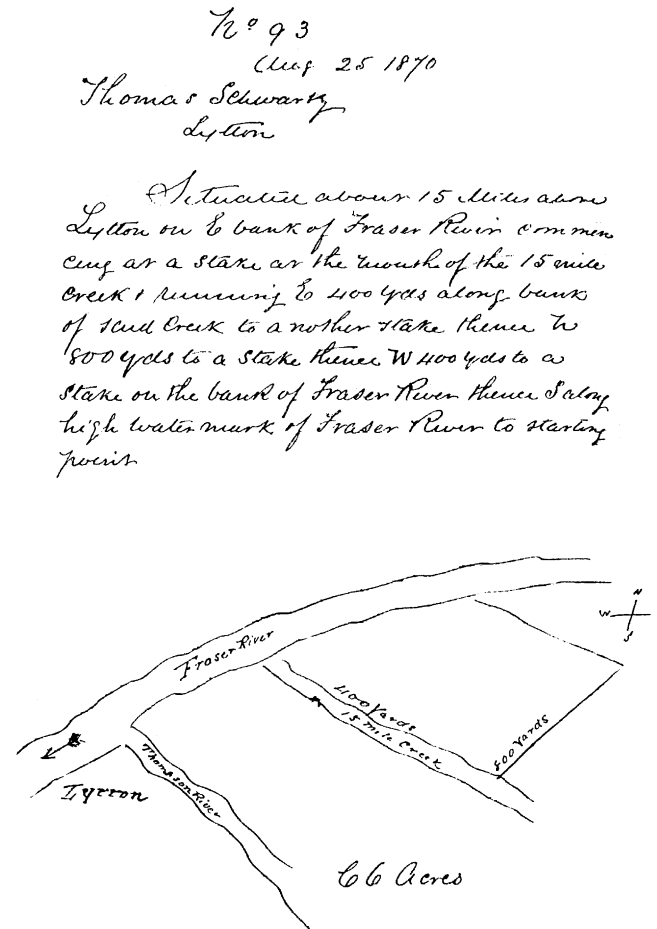 No 93
Aug 25 1870
Thomas Schwartz
Lytton
Situated about 15 Miles above
Lytton on E bank of Fraser River commen
cing at a Stake at the mouth of the 15 mile
Creek & running E 400 Yds along bank
of said Creek to another stake thence N
800 Yds to a Stake thence W 400 yds to a
Stake on the bank of Fraser River thence S along
high water mark of Fraser River to starting
point
N
W
S
Fraser River
400 Yards
15 mile Creek
800 Yards
Thompson River
Lytton
66 Acres